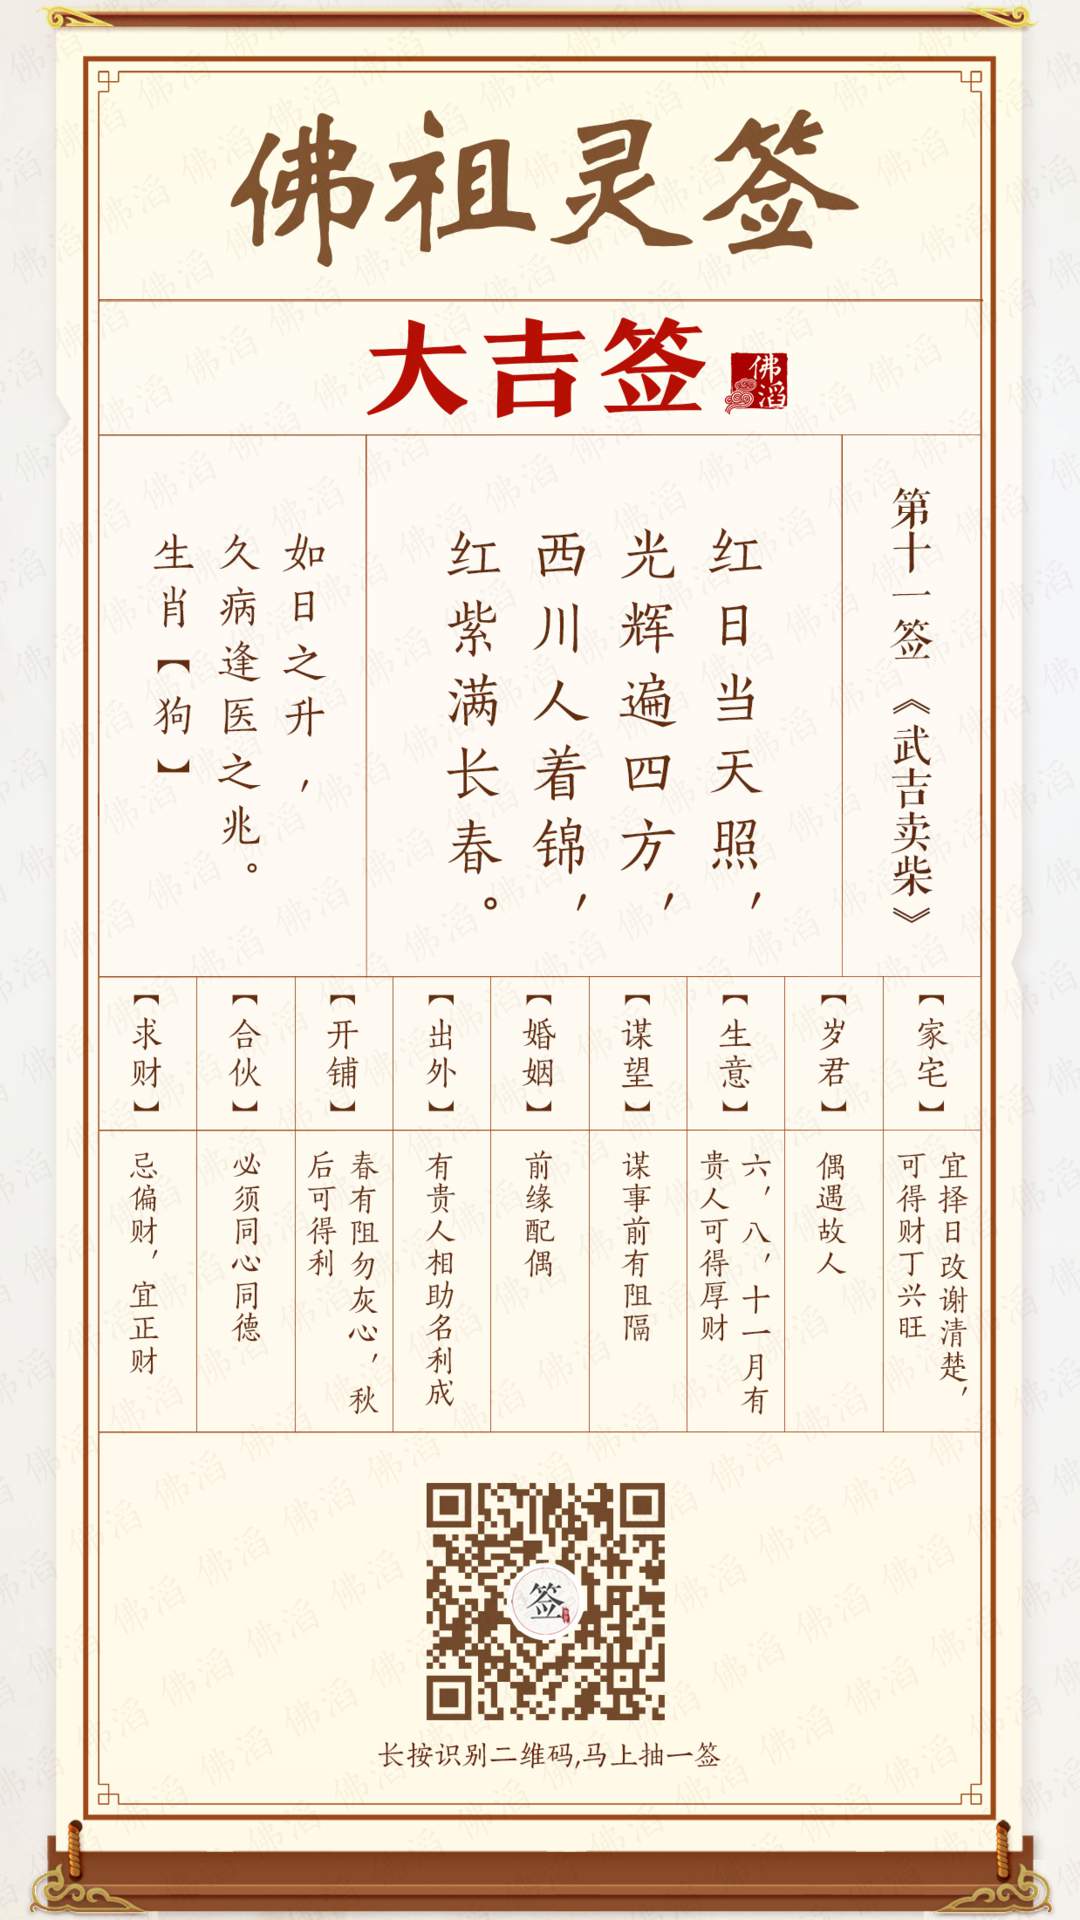 佛祖灵签
大吉签
佛滔
第十一签《武吉卖柴》
红日当天照，
光辉遍四方，
西川人着锦，
红紫满长春。
如日之升，
久病逢医之兆。
生肖【狗】
【家宅】
宜择日改谢清楚，
可得财丁兴旺
【岁君】
偶遇故人
【生意】
六，八，十一月有
贵人可得厚财
【谋望】
谋事前有阻隔
【婚姻】
前缘配偶
【出外】
有贵人相助名利成
【开铺】
春有阻勿灰心，秋
后可得利
【合伙】
必须同心同德
【求财】
忌偏财，宜正财
签
长按识别二维码,马上抽一签